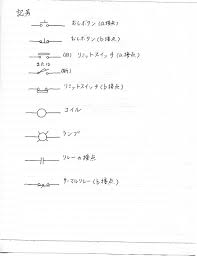 記号
おしボタン (a接点)
おしボタン (b接点)
(a) リミットスイッチ (a接点)
または
リミットスイッチ (b接点)
コイル
ランプ
リレーの接点
サーマルリレー (b接点)